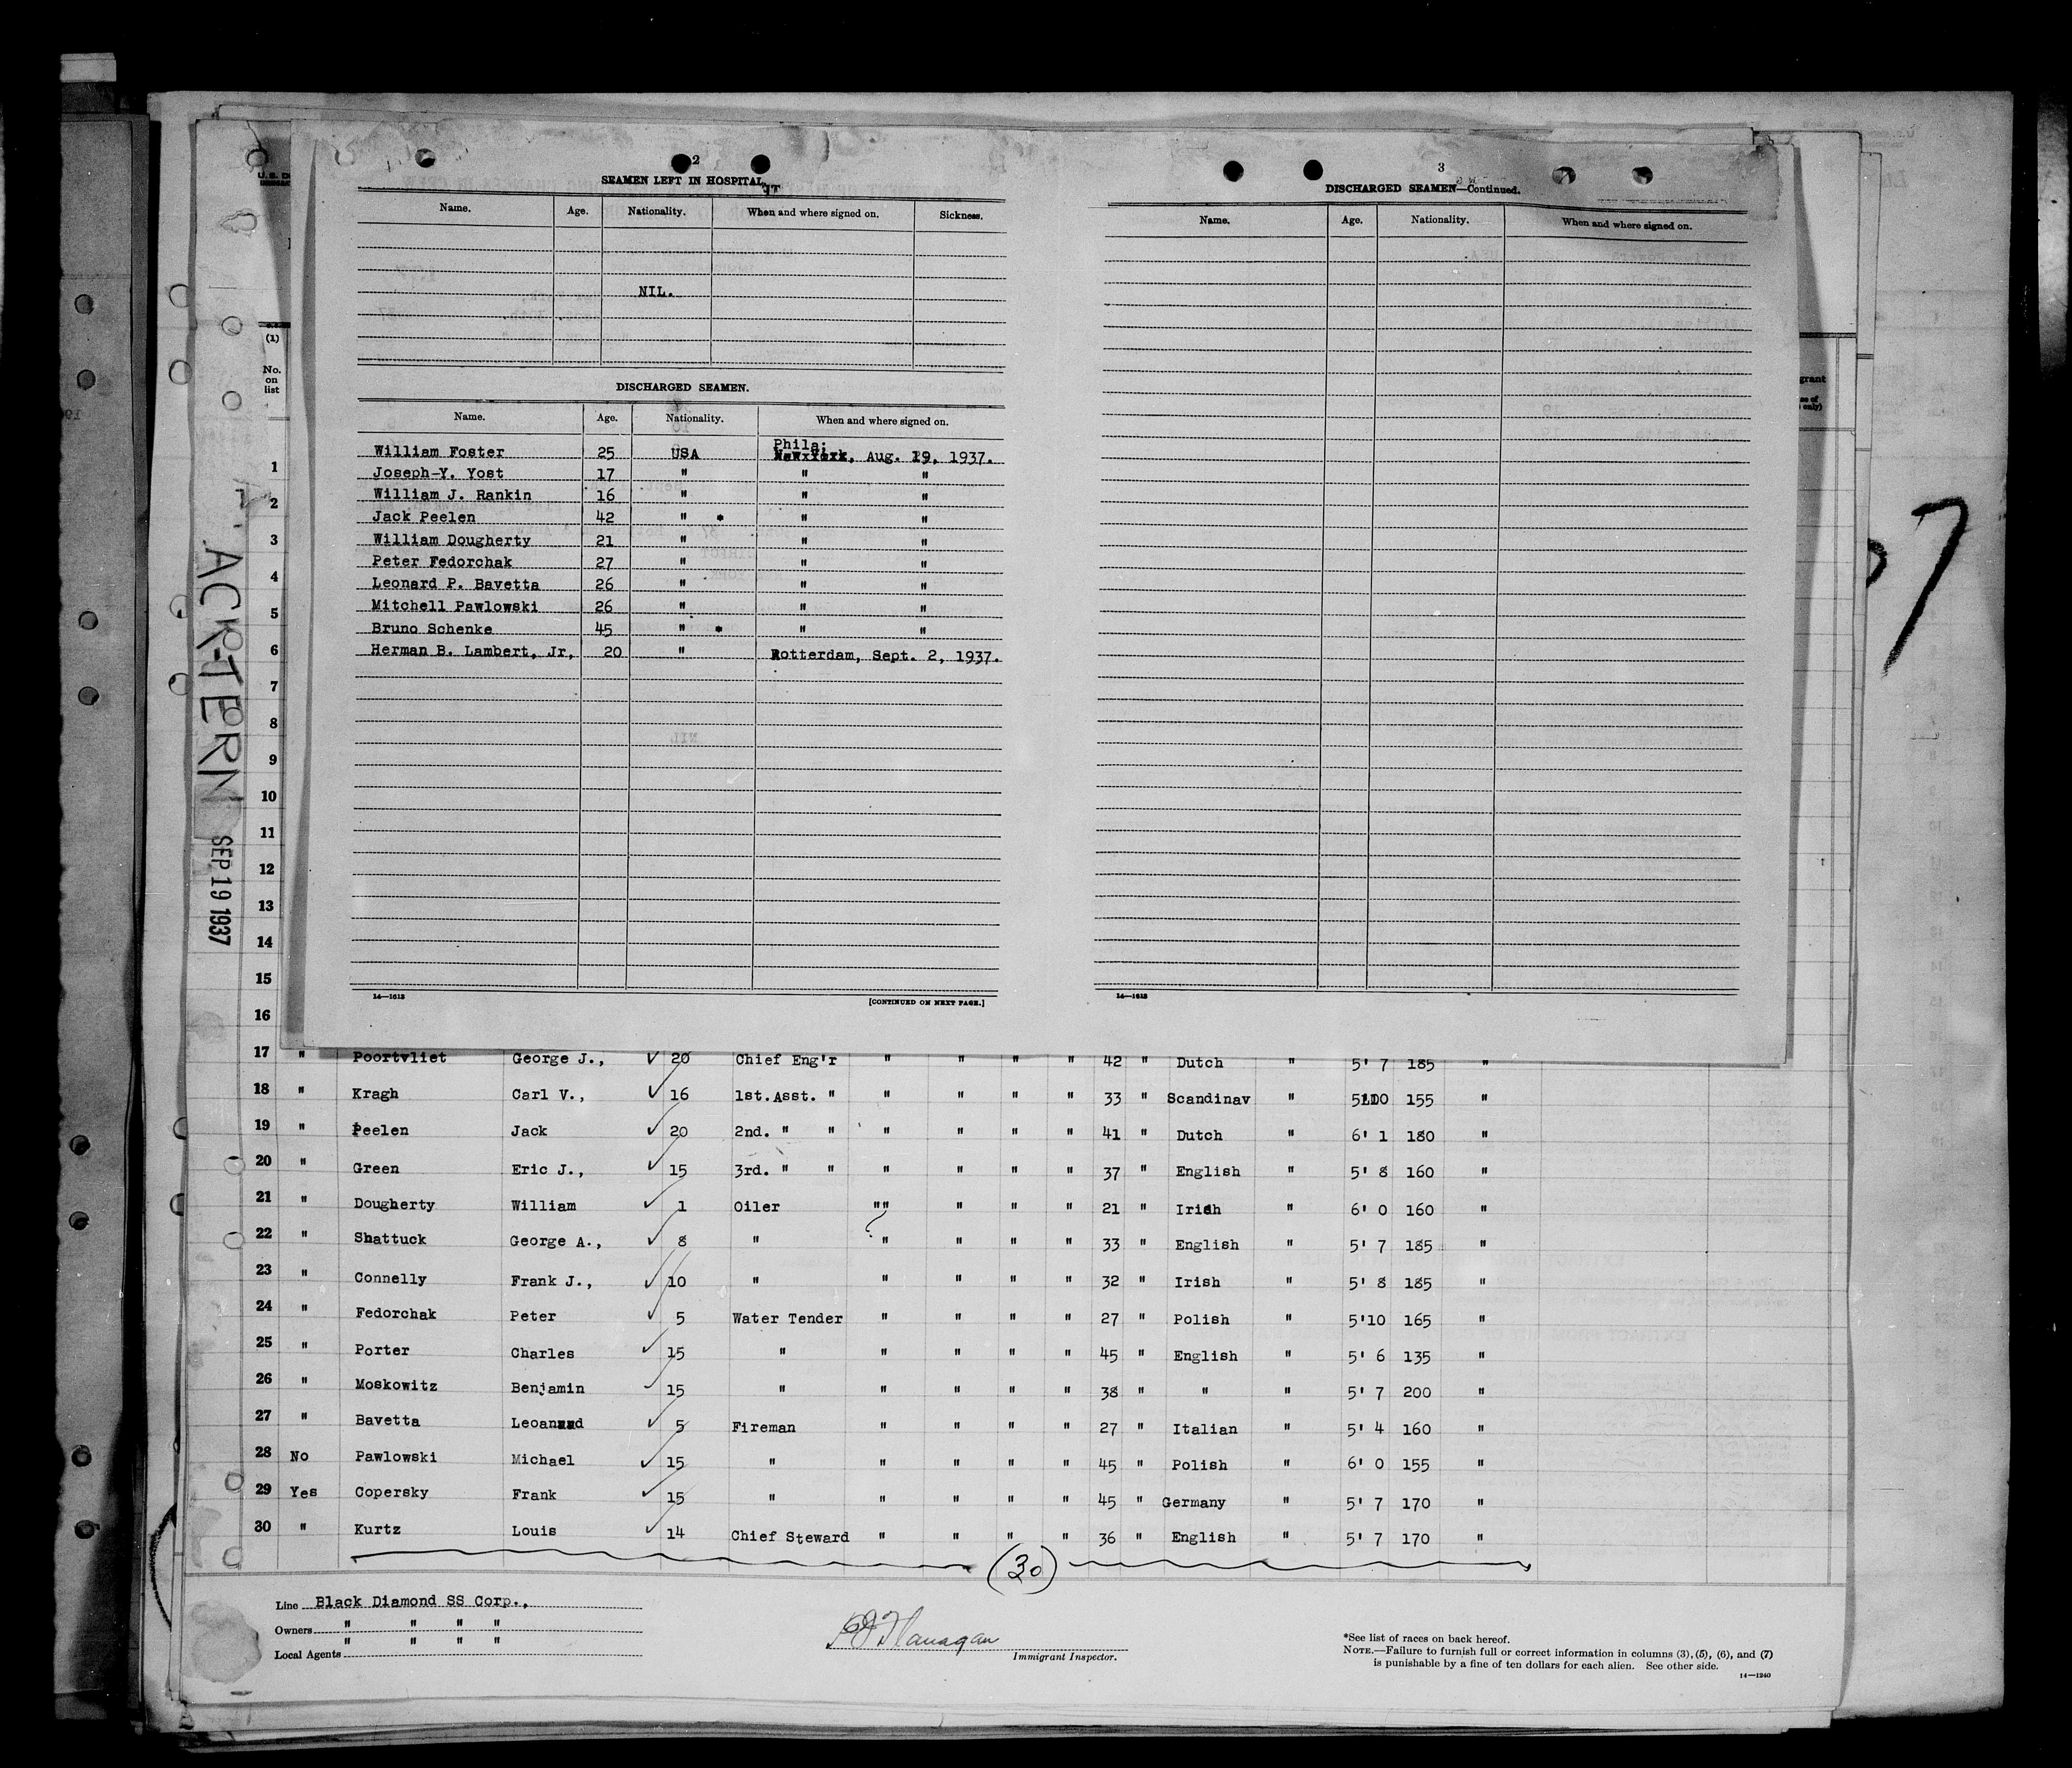 2
SEAMEN LEFT IN HOSPITAL.
Name. Age. Nationality. When and where signed on. Sickness.
NIL.
DISCHARGED SEAMEN.
Name. Age. Nationality. When and where signed on.
Phila;
William Foster 25 USA New York, Aug. 19, 1937.
Joseph Y. Yost 17 " " "
William J. Rankin 16 " " "
Jack Peelen 42 " * " "
William Dougherty 21 " " "
Peter Fedorchak 27 " " "
Leonard P. Bavetta 26 " " "
Mitchell Pawlowski 26 " " "
Bruno Schenke 45 " * " "
Herman B. Lambert, Jr, 20 " Rotterdam, Sept. 2, 1937.
14—1613 [CONTINUED ON NEXT PAGE.]
3
DISCHARGED SEAMEN—Continued.
Name. Age. Nationality. When and where signed on.
14—1613
(1)
No. on list
1
2
3
4
5
6
7
8
9
10
11
12
13
14
15
16
17 " Poortvliet George J., ✓ 20 Chief Eng'r " " " " 42 " Dutch " 5' 7 185 "
18 " Kragh Carl V., ✓ 16 1st.Asst. " " " " " 33 " Scandinav " 5'10 155 "
19 " Peelen Jack ✓ 20 2nd. " " " " " " 41 " Dutch " 6' 1 180 "
20 " Green Eric J., ✓ 15 3rd. " " " " " " 37 " English " 5' 8 160 "
21 " Dougherty William ✓ 1 Oiler "" " " " 21 " Irish " 6' 0 160 "
22 " Shattuck George A., ✓ 8 " " " " " 33 " English " 5' 7 185 "
23 " Connelly Frank J., ✓ 10 " " " " " 32 " Irish " 5' 8 185 "
24 " Fedorchak Peter ✓ 5 Water Tender " " " " 27 " Polish " 5'10 165 "
25 " Porter Charles ✓ 15 " " " " " 45 " English " 5' 6 135 "
26 " Moskowitz Benjamin ✓ 15 " " " " " 38 " " " 5' 7 200 "
27 " Bavetta Leoanxxd ✓ 5 Fireman " " " " 27 " Italian " 5' 4 160 "
28 No Pawlowski Michael ✓ 15 " " " " " 45 " Polish " 6' 0 155 "
29 Yes Copersky Frank ✓ 15 " " " " " 45 " Germany " 5' 7 170 "
30 " Kurtz Louis ✓ 14 Chief Steward " " " " 36 " English " 5' 7 170 "
(30)
Line Black Diamond SS Corp.,
Owners " " " "
Local Agents " " " "
Flanagan
Immigrant Inspector.
*See list of races on back hereof.
NOTE.—Failure to furnish full or correct information in columns (3), (5), (6), and (7)
is punishable by a fine of ten dollars for each alien. See other side.
14—1240
SEP 19 1937
7